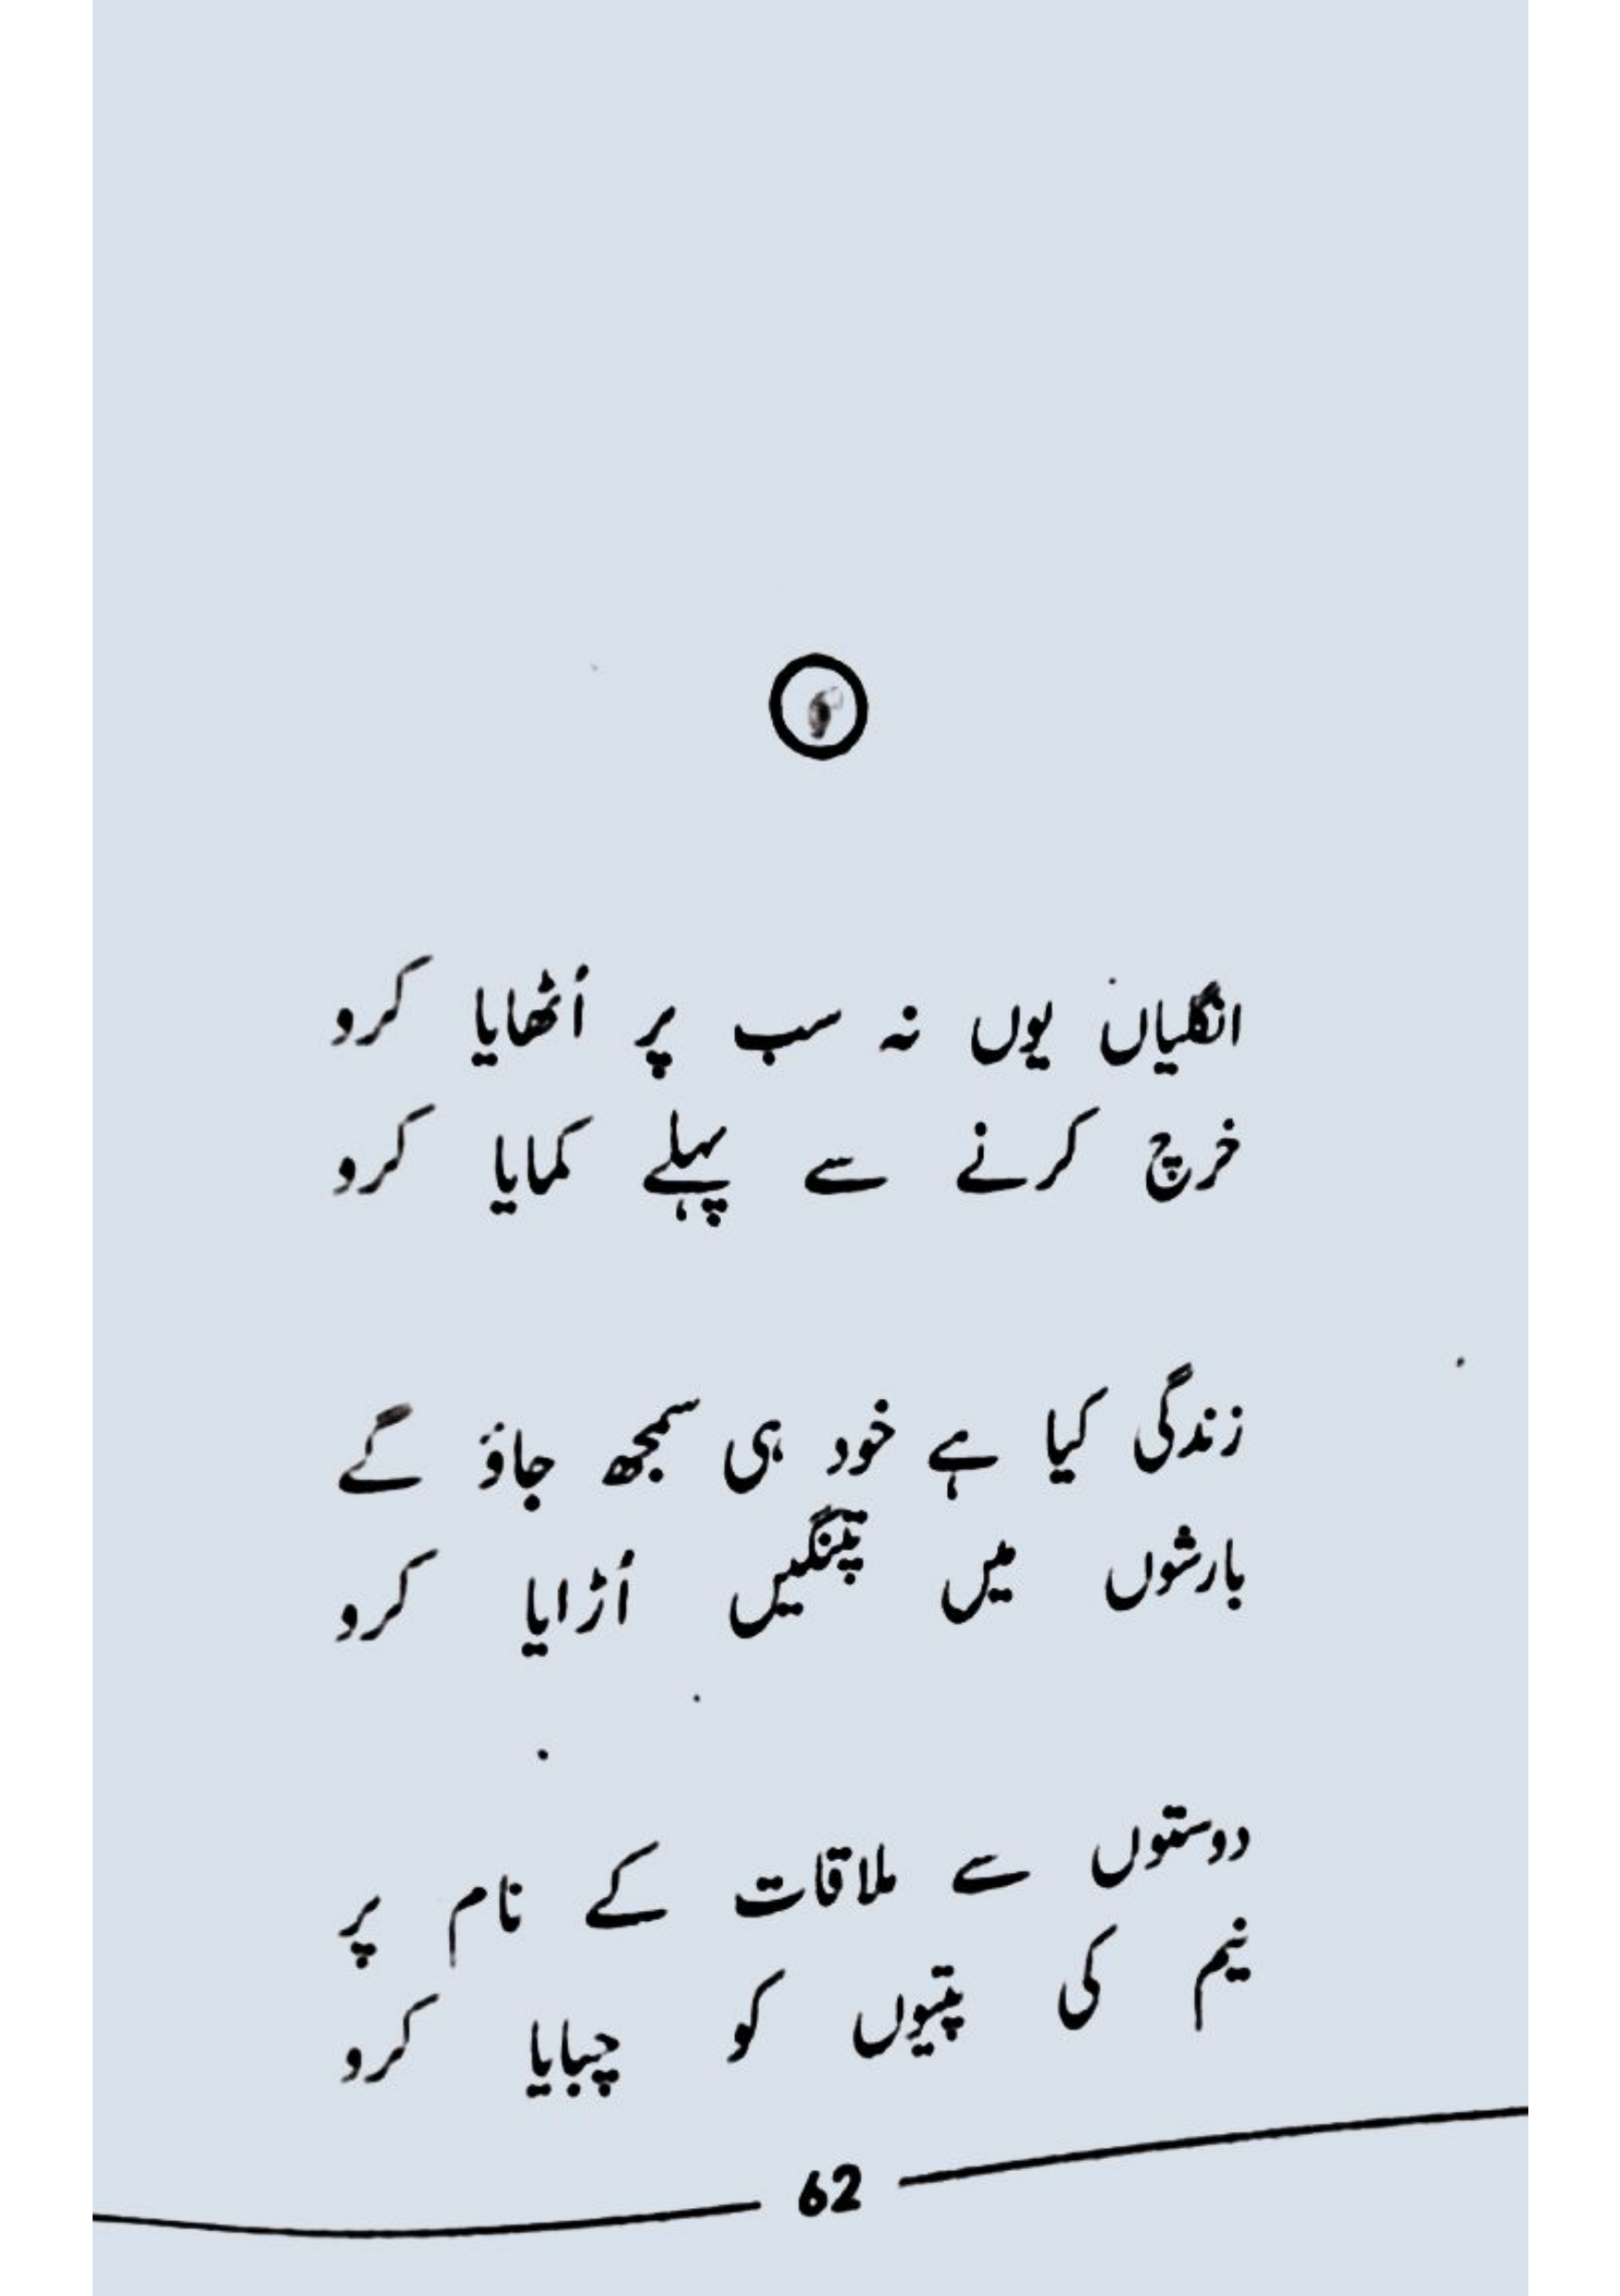 انگلیاں یوں نہ سب پر اُٹھایا کرو
خرچ کرنے سے پہلے کمایا کرو
زندگی کیا ہے خود ہی سمجھ جاؤ گے
بارشوں میں پتنگیں اُڑایا کرو
دوستوں سے ملاقات کے نام پر
نیم کی پتیوں کو چبایا کرو
62